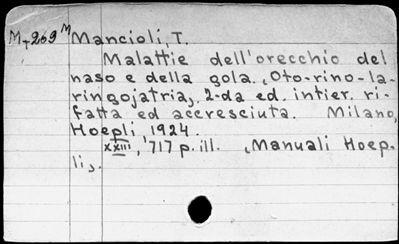 M-269 M Mancioli, T.
Malattie dell'orecchio del
naso e della gola. (Oto-rino-la-
ringojatria), 2-da ed. intier. ri-
fatta ed accresciuta. Milano,
Hoepli, 1924.
xxiii, 717 p. ill. (Manuali Hoep-
li).